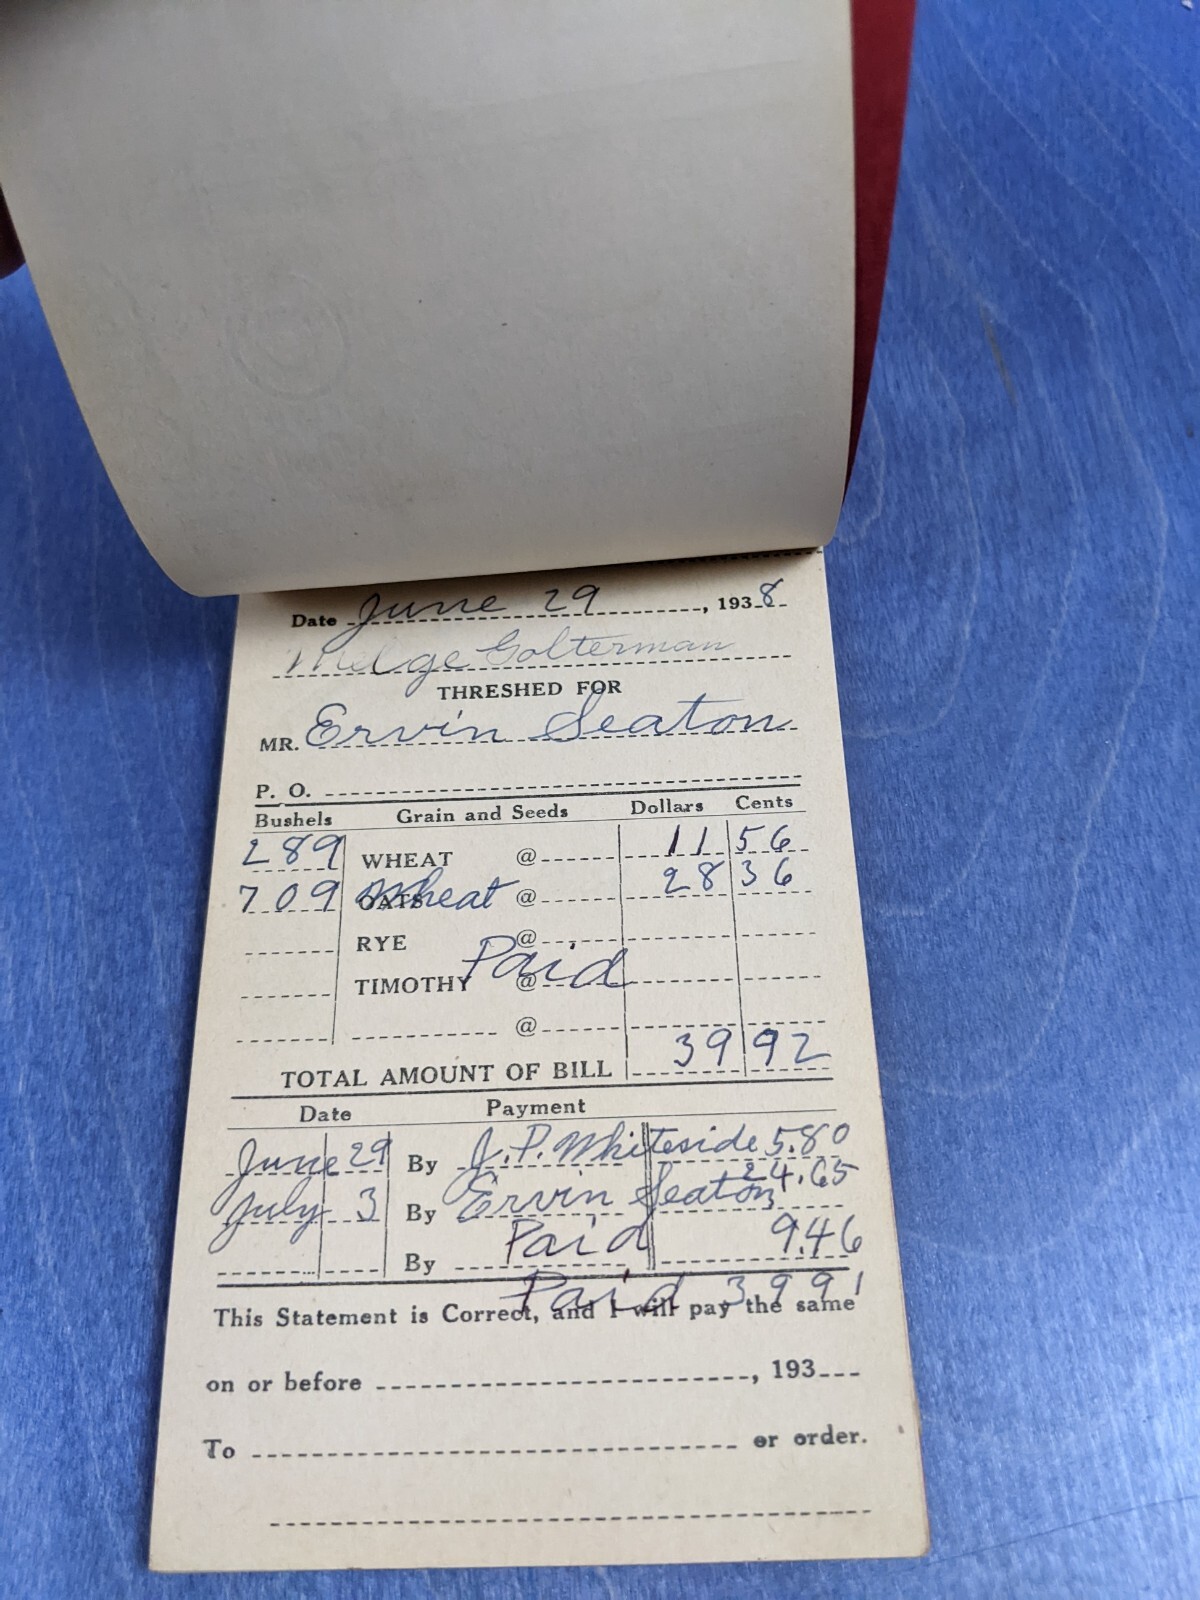 Date June 29, 1938
Melge Golterman
THRESHED FOR
MR. Ervin Seaton
P. O.
Bushels Grain and Seeds Dollars Cents
289 WHEAT @ 11 56
709 OATS Wheat @ 28 36
RYE @
TIMOTHY @ Paid
@
TOTAL AMOUNT OF BILL 39 92
Date Payment
June 29 By J. P. Whiteside 5.80
July 3 By Ervin Seaton 24.65
By Paid 9.46
Paid 39 91
This Statement is Correct, and I will pay the same
on or before , 193
To or order.